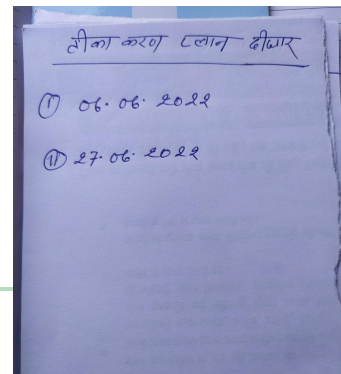 टीका करण प्लान दीघार
(I) 06. 06. 2022
(II) 27. 06. 2022